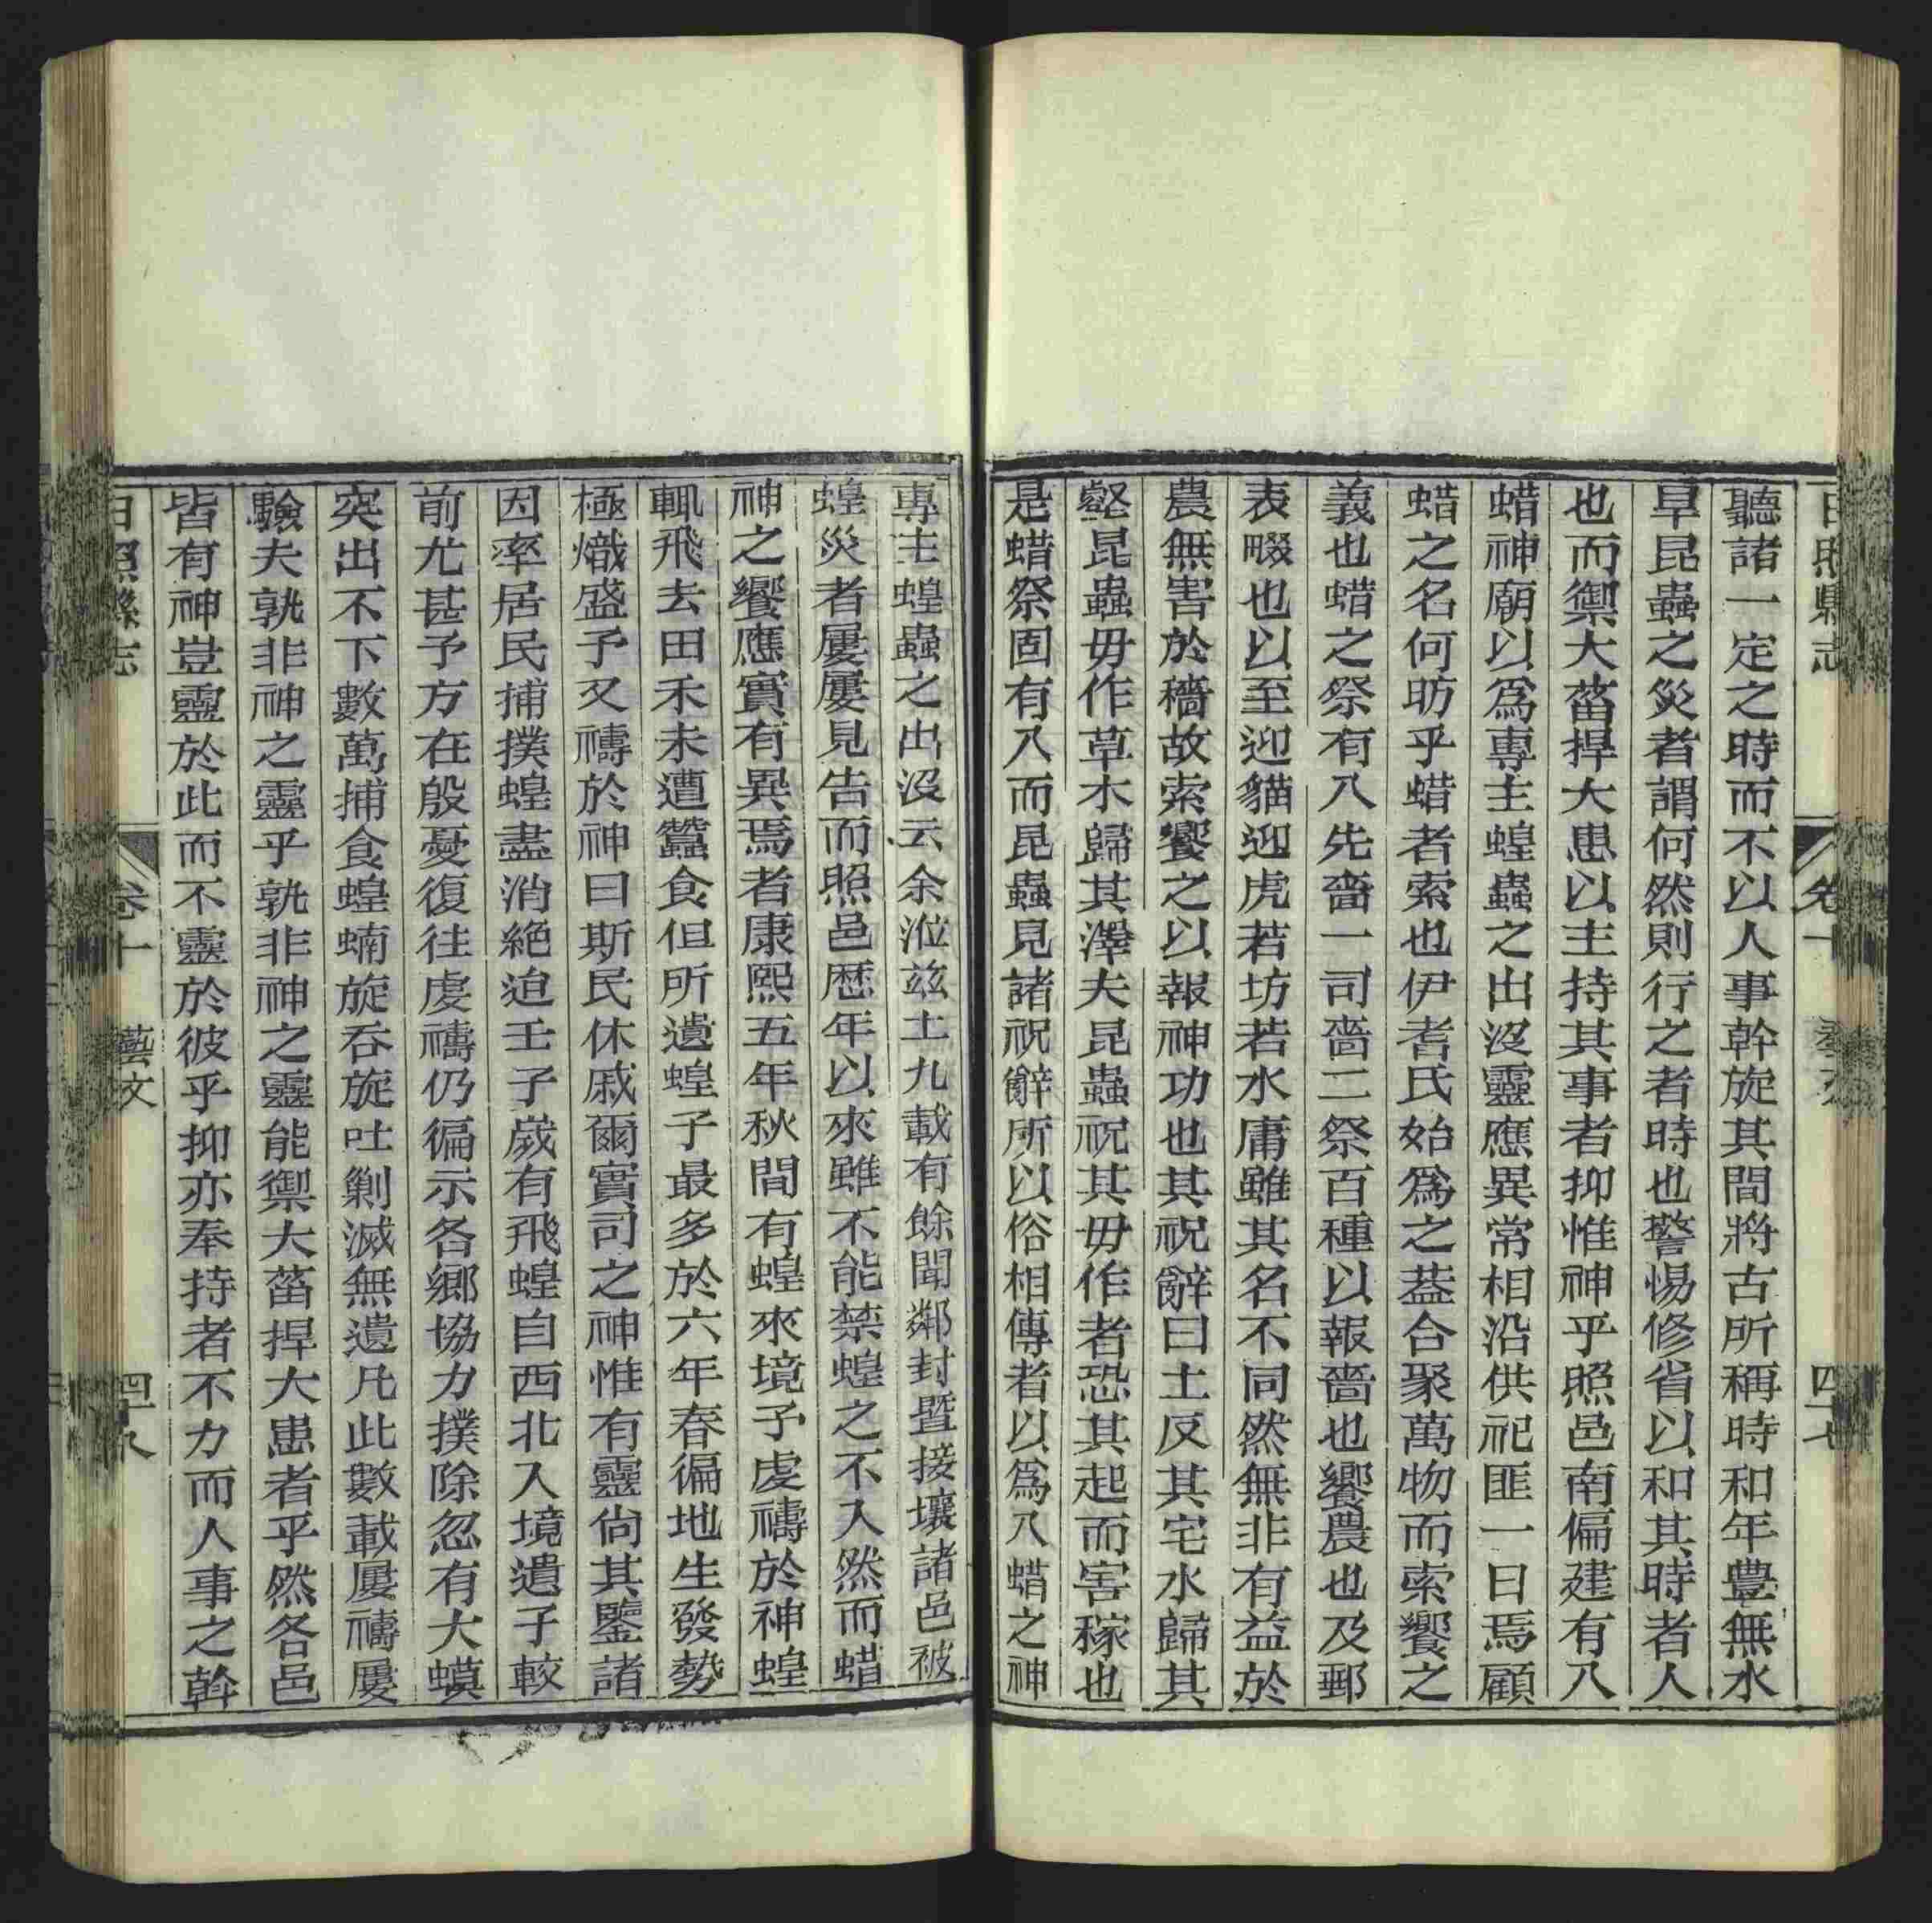 日照縣志 卷十 藝文 四十七
聽諸一定之時而不以人事幹旋其間將古所稱時和年豊無水
旱昆蟲之災者謂何然則行之者時也警惕修省以和其時者人
也而禦大菑捍大患以主持其事者抑惟神乎照邑南偏建有八
蜡神廟以爲專主蝗蟲之出沒靈應異常相沿供祀匪一日焉顧
蜡之名何昉乎蜡者索也伊耆氏始爲之葢合聚萬物而索饗之
義也蜡之祭有八先嗇一司嗇二祭百種以報嗇也饗農也及郵
表畷也以至迎貓迎虎若坊若水庸雖其名不同然無非有益於
農無害於穡故索饗之以報神功也其祝辭曰土反其宅水歸其
壑昆蟲毋作草木歸其澤夫昆蟲祝其毋作者恐其起而害稼也
是蜡祭固有八而昆蟲見諸祝辭所以俗相傳者以爲八蜡之神
專主蝗蟲之出沒云余涖茲土九載有餘聞鄰封暨接壤諸邑被
蝗災者屢屢見告而照邑歷年以來雖不能禁蝗之不入然而蜡
神之饗應實有異焉者康熙五年秋間有蝗來境予虔禱於神蝗
輒飛去田禾未遭蠶食但所遺蝗子最多於六年春徧地生發勢
極熾盛予又禱於神曰斯民休戚爾實司之神惟有靈尙其鑒諸
因率居民捕撲蝗盡消絕迨壬子歲有飛蝗自西北入境遺子較
前尤甚予方在殷憂復往虔禱仍徧示各鄉協力撲除忽有大蟆
突出不下數萬捕食蝗蝻旋吞旋吐剿滅無遺凡此數載屢禱屢
驗夫孰非神之靈乎孰非神之靈能禦大菑捍大患者乎然各邑
皆有神豈靈於此而不靈於彼乎抑亦奉持者不力而人事之斡
日照縣志 卷十 藝文 四十八